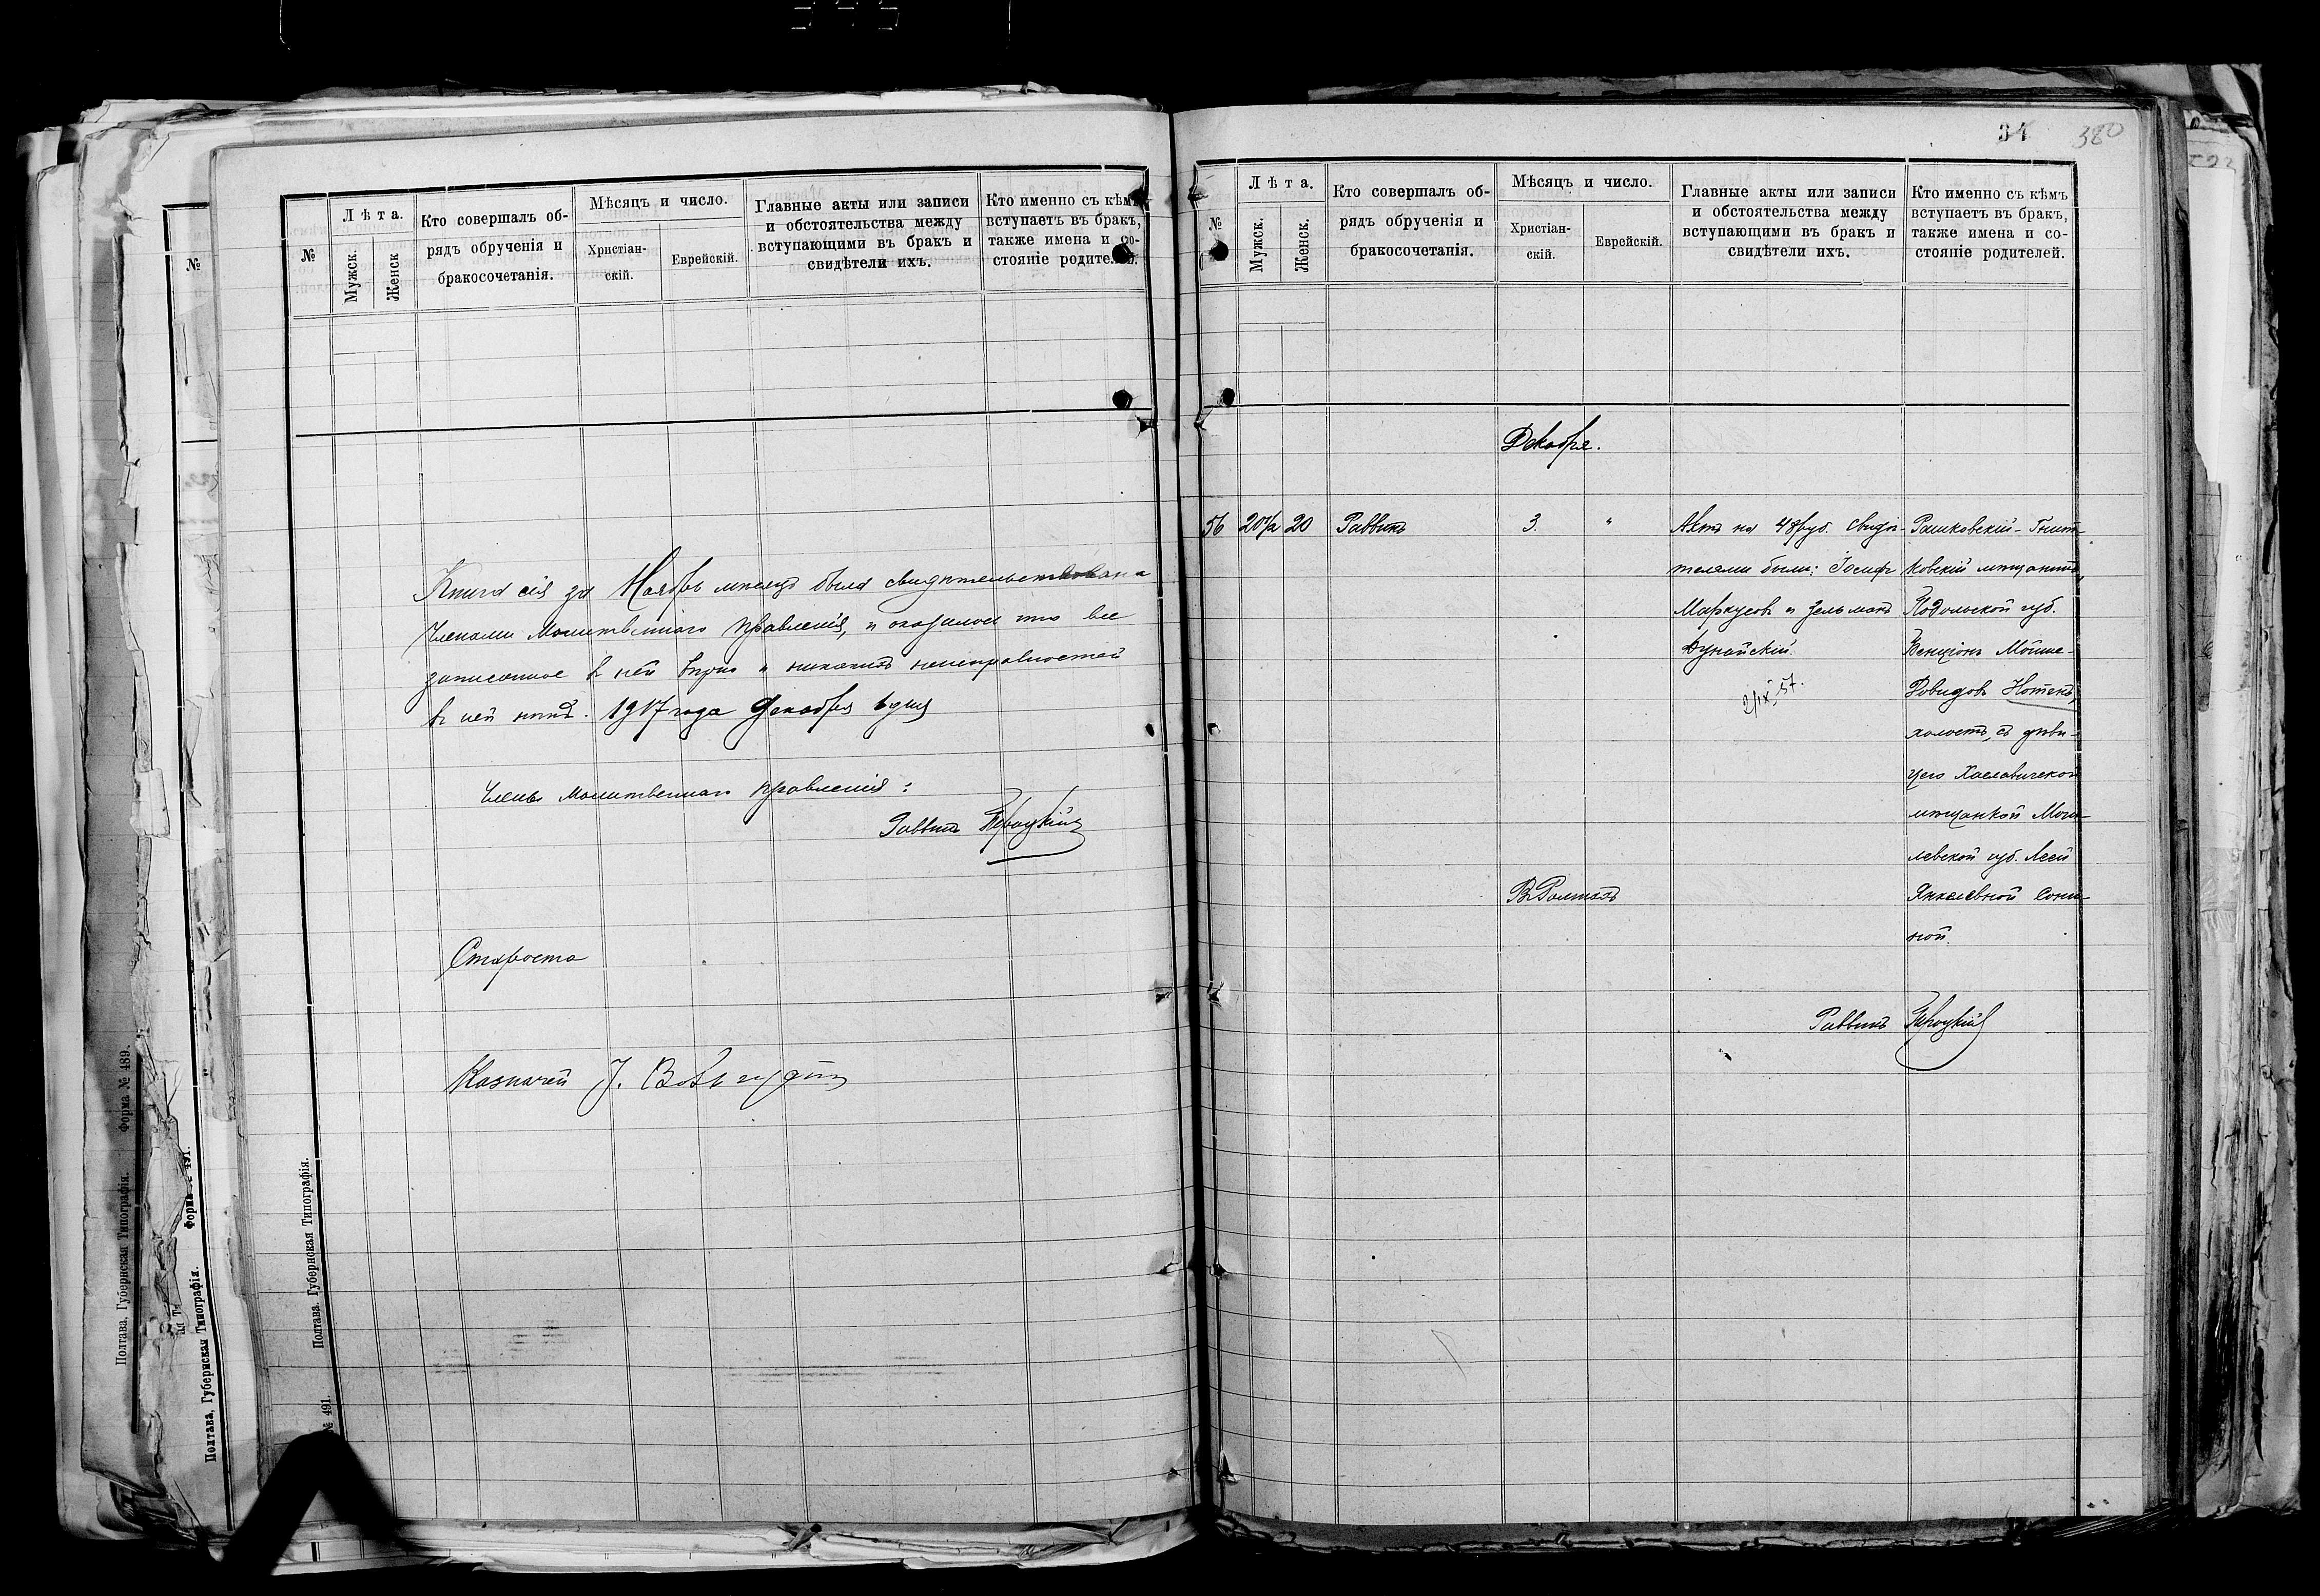 №
Лѣта.
Мужск.
Женск
Кто совершалъ об-
рядъ обрученія и
бракосочетанія.
Мѣсяцъ и число.
Христіан-
скій.
Еврейскій.
Главные акты или записи
и обстоятельства между
вступающими въ бракъ и
свидѣтели ихъ.
Кто именно съ кѣмъ
вступаетъ въ бракъ,
также имена и со-
стояніе родителей.
Книга сія за Ноябрь мѣсяцъ была свидѣтельствована
Членами Молитвеннаго Правленія, и оказалось что все
записанное въ ней вѣрно и никакихъ неисправностей
въ ней нѣтъ. 1917 года Декабря 1 дня
Члены Молитвеннаго Правленія:
Раввинъ
Староста
Казначей
Полтава. Губернская Типографія.
№ 491.
№
Полтава, Губернская Типографія. Форма № 489.
Полтава, Губернская Типографія. Форма 491.
34 380
№
Лѣта.
Мужск.
Женск.
Кто совершалъ об-
рядъ обрученія и
бракосочетанія.
Мѣсяцъ и число.
Христіан-
скій.
Еврейскій.
Главные акты или записи
и обстоятельства между
вступающими въ бракъ и
свидѣтели ихъ.
Кто именно съ кѣмъ
вступаетъ въ бракъ,
также имена и со-
стояніе родителей.
Декабря.
56 20½ 20 Раввинъ 3. "
Актъ на 48 руб. Свидѣ-
телями были: Іосифъ
Маркусовъ и Зельманъ
Дунайскій
2/IX 57.
Рашковскій-Гнит-
ковскій мѣщанинъ,
Подольской губ.
Бенціонъ Мойше-
Довидовъ Нотекъ,
холостъ, съ дѣви-
цею Хославичской
мѣщанкой Моги-
левской губ. Леей
Янкелевной Сони-
ной.
Въ Ромнахъ
Раввинъ